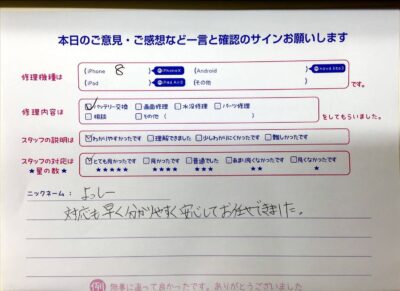 本日のご意見・ご感想など一言と確認のサインお願いします
修理機種は
iPhone 8
iPhoneX
Android
iPad
その他
です。
修理内容は
☑バッテリー交換 □画面修理 □水没修理 □パーツ修理
□相談 □その他 ( )
をしてもらいました。
スタッフの説明は ☑わかりやすかったです □理解できました □少しわかりにくかったです □難しかったです
スタッフの対応は ☑とても良かったです □良かったです □普通でした □あまり良くなかったです □良くなかったです
★星の数★ ★★★★★ ★★★★ ★★★ ★★ ★
ニックネーム: よっしー
対応も早く分かりやすく安心してお任せできました。
例 無事に直って良かったです。ありがとうございました